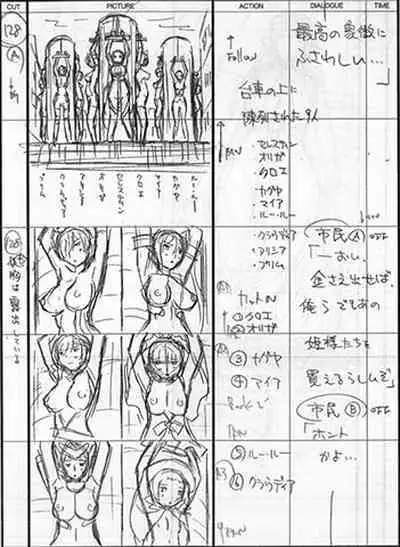 CUT
PICTURE
ACTION
DIALOGUE
TIME
128
A
Follow
最高の象徴に
ふさわしい…
」
台車の上に
陳列された9人
・セレスティン
オリガ
・クロエ
・カグヤ
・マイア
・ルー・ルー
・クラウディア
・アリシア
・プリム
ルー・ルー
カグヤ
マイア
クロエ
セレスティン
オリガ
アリシア
クラウディア
プリム
128
胸は露出している
①クロエ
②オリガ
③カグヤ
④マイア
⑤ルー・ルー
⑥クラウディア
市民A
「おい、
金さえ出せば、
俺らでもあの
姫様たちを
買えるらしいぞ」
市民B
「ホント
かよ…